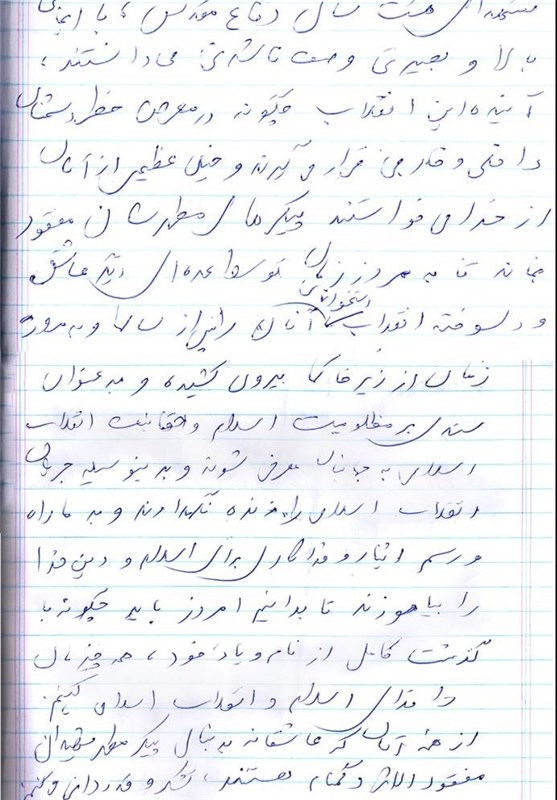 هشت سال دفاع مقدس، با ایمان
بالا و بصیرتی وصف ناشدنی می دانستند،
آینده این انقلاب چگونه در معرض خطر دشمنان
داخلی و خارجی قرار می گیرد و خیل عظیمی از آنان
از خدا می خواستند پیکرهای مطهرشان مفقود
بماند تا به مرور زمان توسط عده ای دیگر عاشق
و دلسوخته انقلاب استخوانهای آنان را پس از سالها و به مرور
زمان از زیر خاکها بیرون کشیده و به عنوان
سندی بر مظلومیت اسلام و حقانیت انقلاب
اسلامی به جهانیان معرفی شوند و بدینوسیله جریان
انقلاب اسلامی را زنده نگهدارند و به ما راه
و رسم ایثار و فداکاری برای اسلام و دین خدا
را بیاموزند تا بدانیم امروز باید چگونه با
گذشت کامل از نام و یاد خود، همه چیزمان
را فدای اسلام و انقلاب اسلامی کنیم.
از همه آنان که عاشقانه بدنبال پیکر مطهر شهیدان
مفقود الاثر و گمنام هستند، تشکر و قدردانی می کنم.